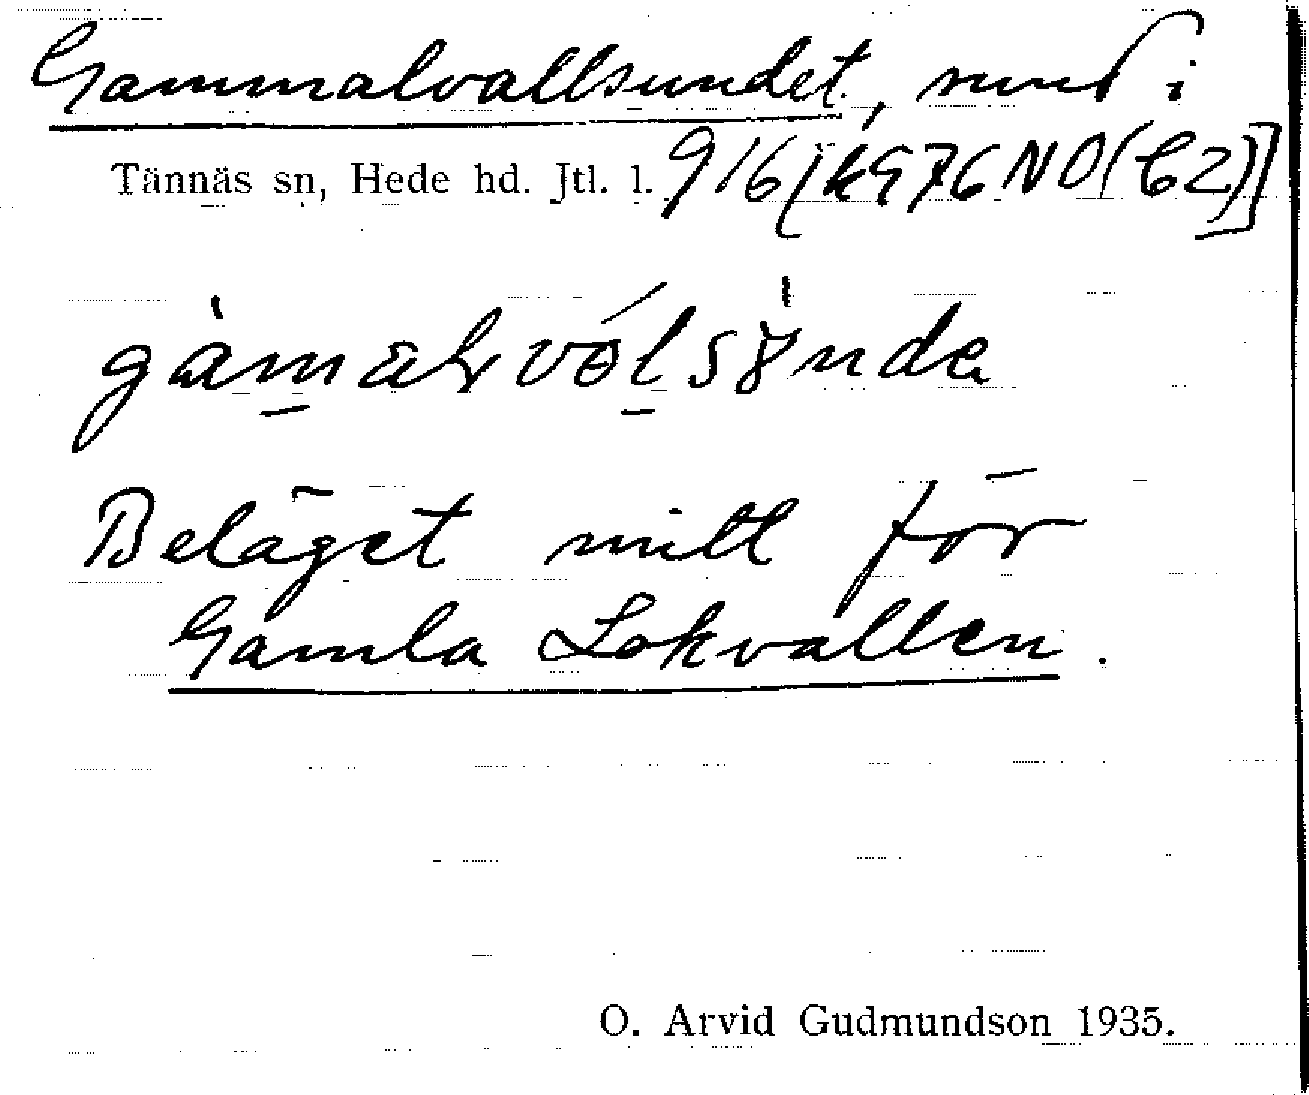 Gammalvallsundet, sund i
Tännäs sn, Hede hd. Jtl. l. 916 [k976NO(C2)]
Beläget mitt för
Gamla Lokvallen.
O. Arvid Gudmundson 1935.